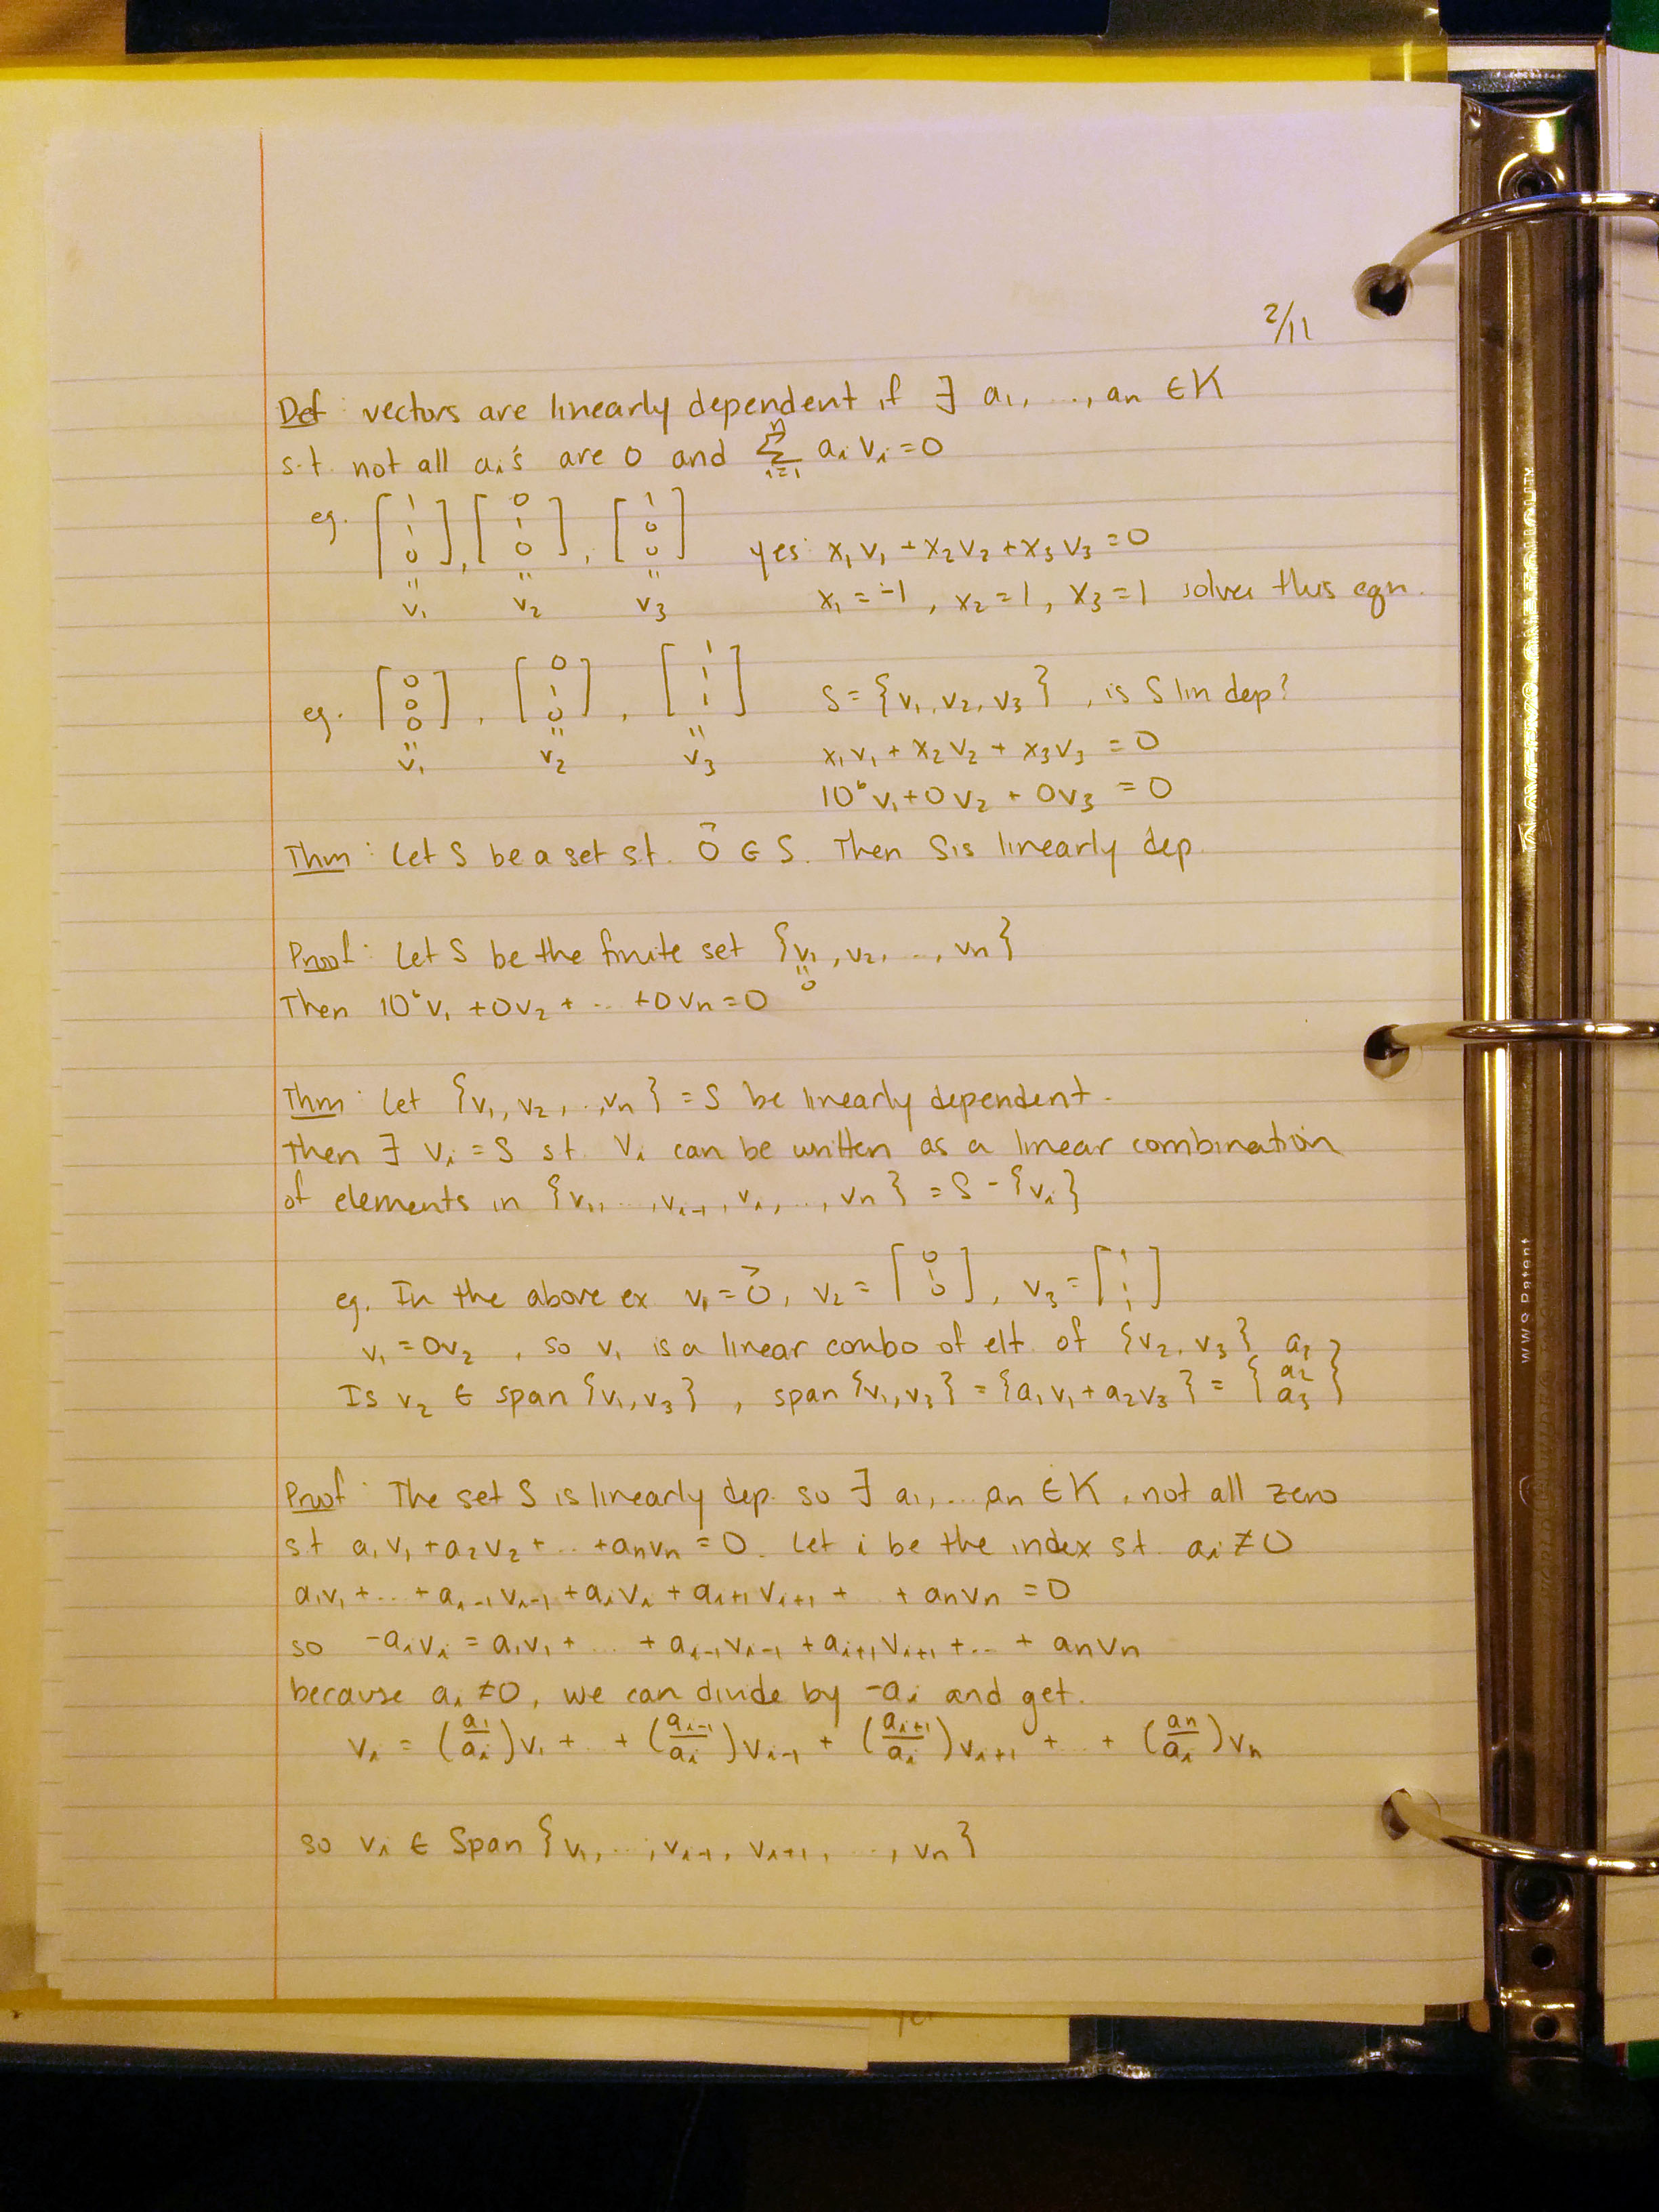 2/11
Def: vectors are linearly dependent if ∃ a₁, ..., aₙ ∈ K
s.t. not all aᵢ's are 0 and Σⁿᵢ₌₁ aᵢ vᵢ = 0
eg. [1 1 0], [0 1 0], [1 0 0] yes: x₁v₁ + x₂v₂ + x₃v₃ = 0
" " "
v₁ v₂ v₃ x₁ = -1, x₂ = 1, x₃ = 1 solves this eqn.
eg. [0 0 0], [0 1 0], [1 1 1] S = {v₁, v₂, v₃}, is S lin dep?
" " "
v₁ v₂ v₃ x₁v₁ + x₂v₂ + x₃v₃ = 0
10⁶v₁ + 0v₂ + 0v₃ = 0
Thm: Let S be a set s.t. 0⃗ ∈ S. Then S is linearly dep.
Proof: Let S be the finite set {v₁, v₂, ..., vₙ}
"
0
Then 10⁶v₁ + 0v₂ + ... + 0vₙ = 0
Thm: Let {v₁, v₂, ..., vₙ} = S be linearly dependent.
then ∃ vᵢ = S st. Vᵢ can be written as a linear combination
of elements in {v₁, ..., vᵢ₋₁, vᵢ, ..., vₙ} = S - {vᵢ}
eg. In the above ex v₁ = 0⃗, v₂ = [0 1 0], v₃ = [1 1 1]
v₁ = 0v₂, so v₁ is a linear combo of elt. of {v₂, v₃}
Is v₂ ∈ span {v₁, v₃}, span {v₁, v₃} = {a₁v₁ + a₂v₃} = {a₂ a₂ a₃}
Proof: The set S is linearly dep. so ∃ a₁, ... aₙ ∈ K, not all zero
s.t a₁v₁ + a₂v₂ + ... + aₙvₙ = 0. Let i be the index s.t. aᵢ ≠ 0
a₁v₁ + ... + aᵢ₋₁vᵢ₋₁ + aᵢvᵢ + aᵢ₊₁vᵢ₊₁ + ... + aₙvₙ = 0
so -aᵢvᵢ = a₁v₁ + ... + aᵢ₋₁vᵢ₋₁ + aᵢ₊₁vᵢ₊₁ + ... + aₙvₙ
because aᵢ ≠ 0, we can divide by -aᵢ and get.
vᵢ = (a₁/aᵢ)v₁ + ... + (aᵢ₋₁/aᵢ)vᵢ₋₁ + (aᵢ₊₁/aᵢ)vᵢ₊₁ + ... + (aₙ/aᵢ)vₙ
so vᵢ ∈ Span {v₁, ..., vᵢ₋₁, vᵢ₊₁, ..., vₙ}